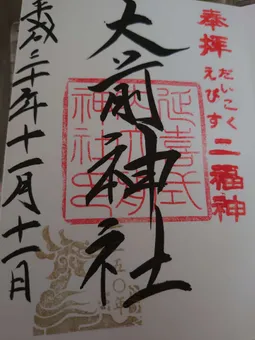 奉拝
だいこく
えびす
二福神
大前神社
平成三十年十一月十一日
延喜式
神社